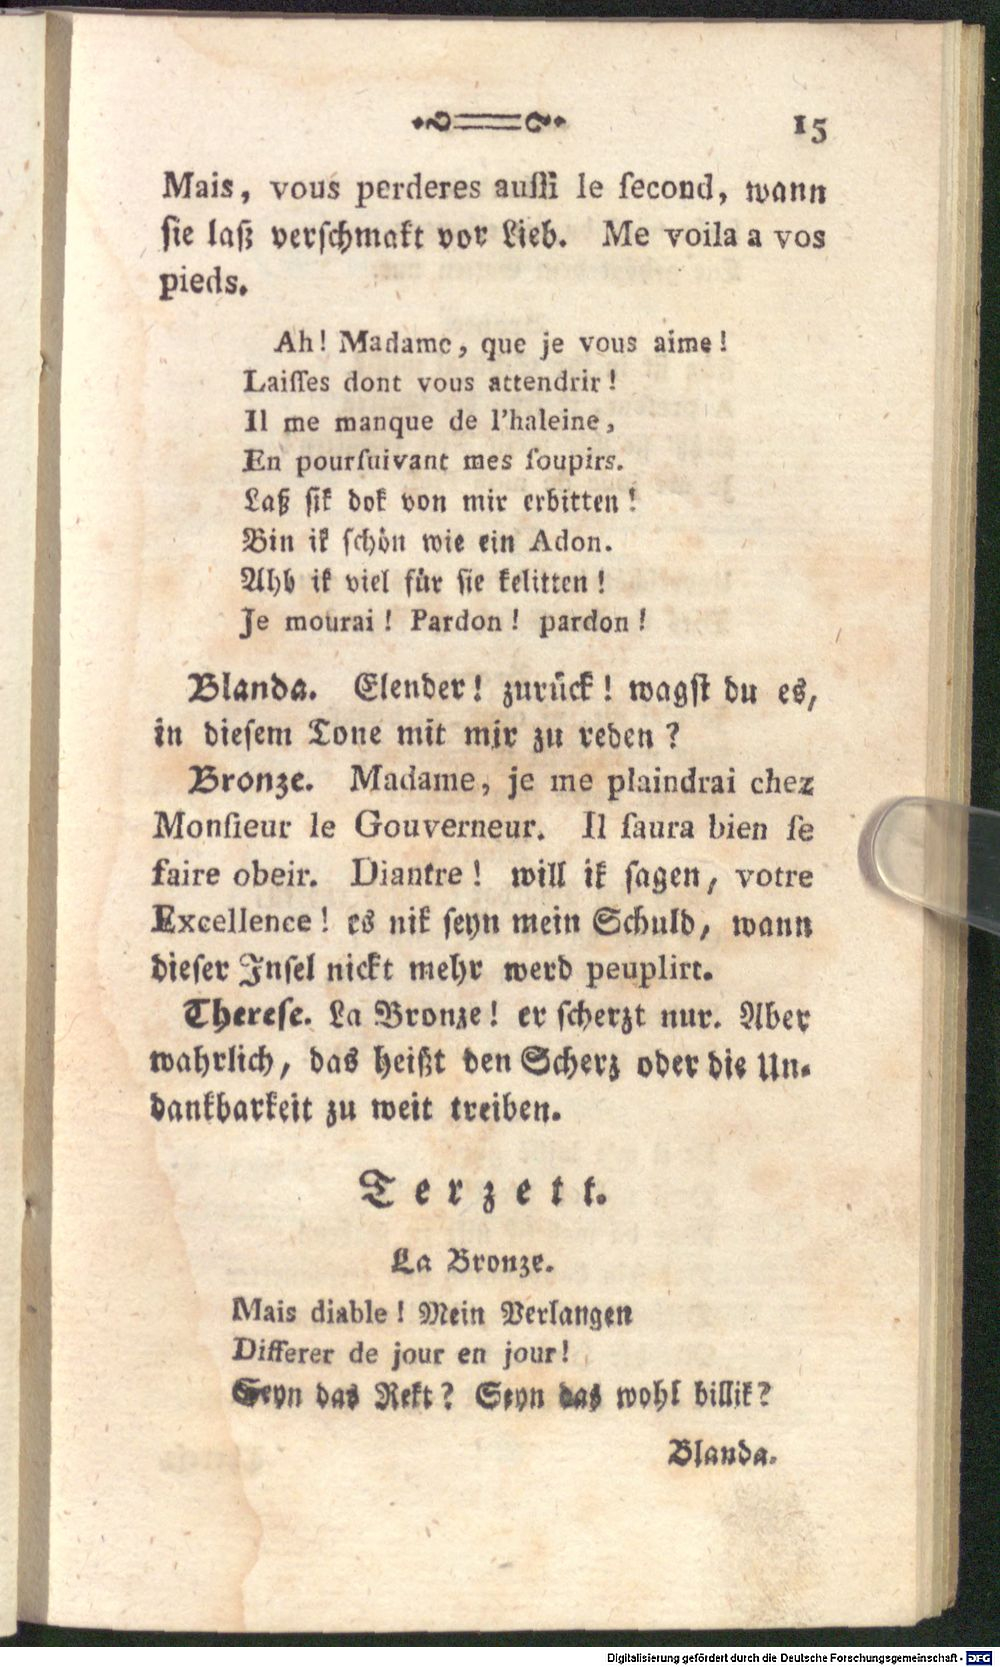 15
Mais, vous perderes auſſi le ſecond, wann
ſie laß verſchmakt vor Lieb. Me voila a vos
pieds.
Ah! Madame, que je vous aime!
Laiſſes dont vous attendrir!
Il me manque de l'haleine,
En pourſuivant mes ſoupirs.
Laß ſik dok von mir erbitten!
Bin ik ſchön wie ein Adon.
Ahb ik viel für ſie kelitten!
Je mourai! Pardon! pardon!
Blanda. Elender! zurück! wagſt du es,
in dieſem Tone mit mir zu reden?
Bronze. Madame, je me plaindrai chez
Monſieur le Gouverneur. Il ſaura bien ſe
faire obeir. Diantre! will ik ſagen, votre
Excellence! es nik ſeyn mein Schuld, wann
dieſer Inſel nickt mehr werd peuplirt.
Thereſe. La Bronze! er ſcherzt nur. Aber
wahrlich, das heißt den Scherz oder die Un-
dankbarkeit zu weit treiben.
Terzett.
La Bronze.
Mais diable! Mein Verlangen
Differer de jour en jour!
Seyn das Rekt? Seyn das wohl billik?
Blanda.
Digitalisierung gefördert durch die Deutsche Forschungsgemeinschaft - DFG